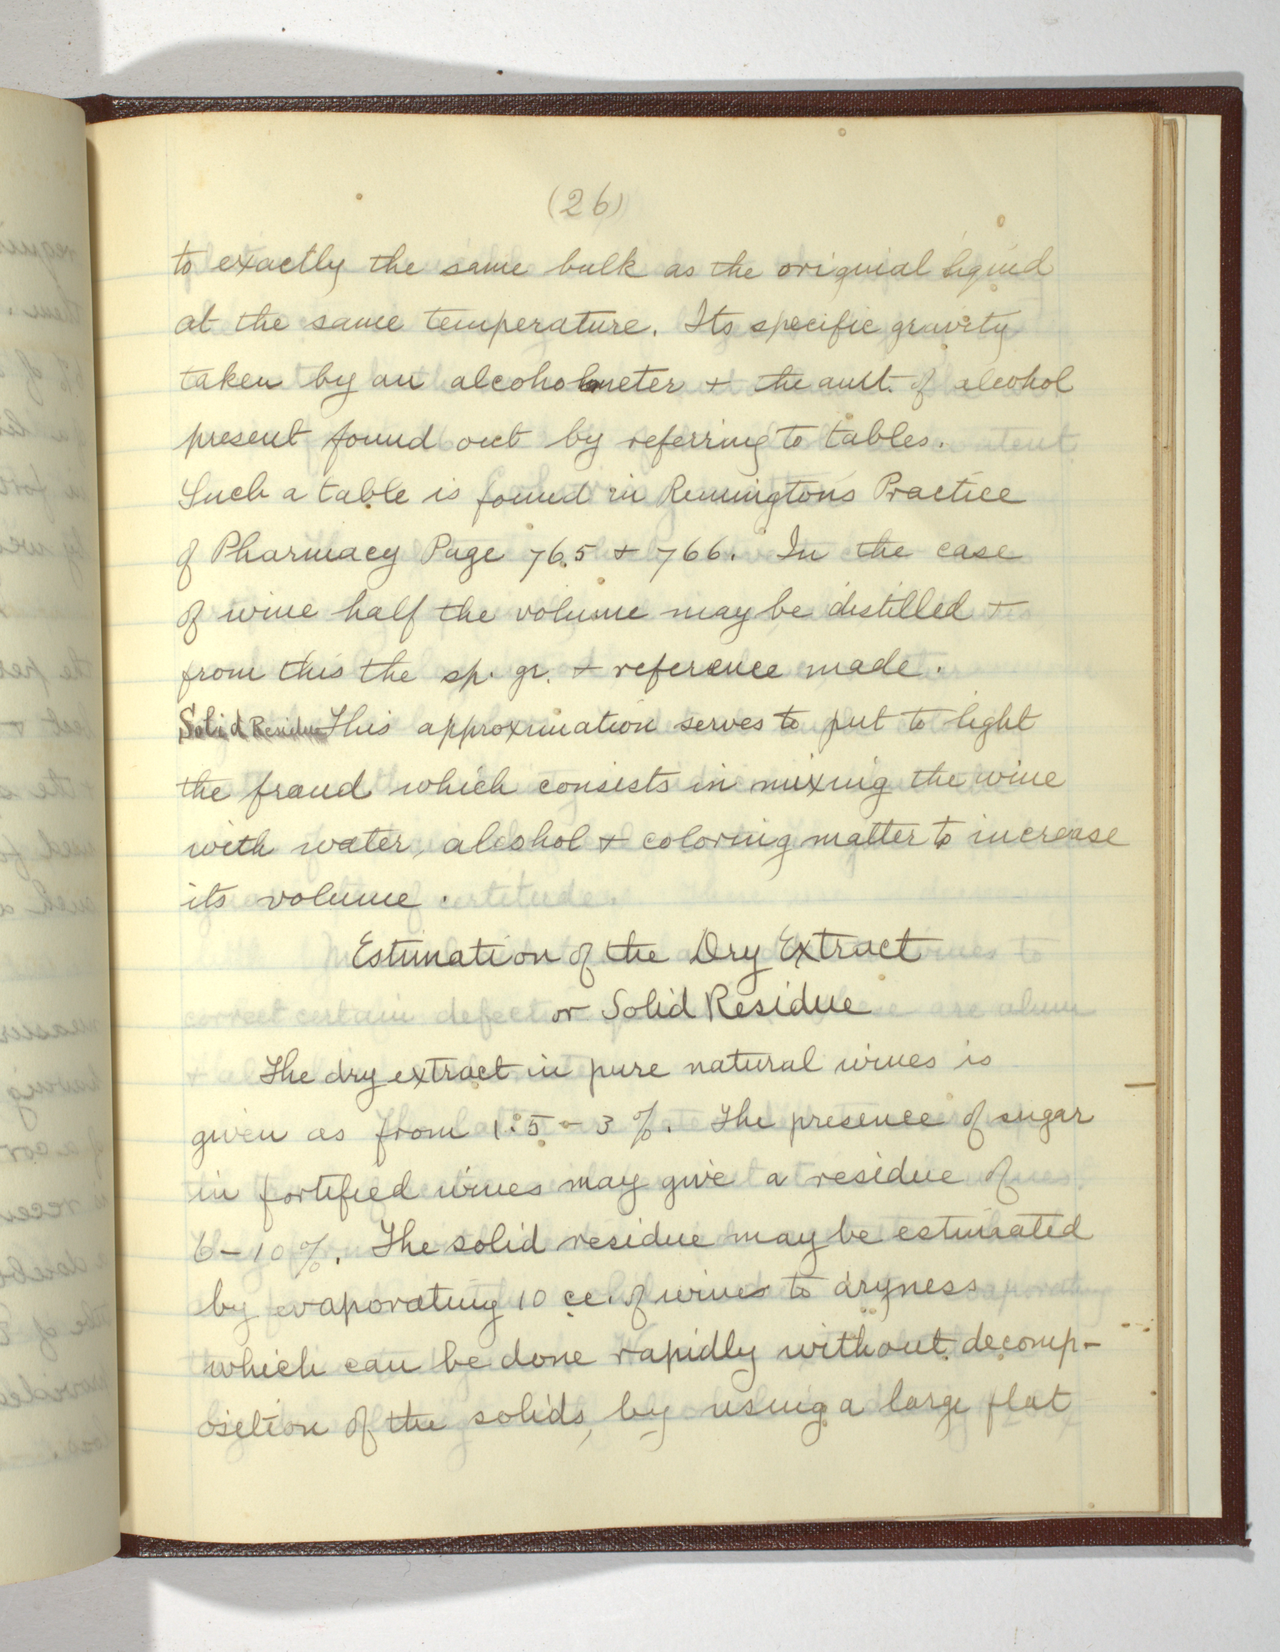 (26)
to exactly the same bulk as the original liquid
at the same temperature. Its specific gravity
taken by an alcoholmeter + the amt. of alcohol
present found out by referring to tables.
Such a table is found in Remingtons Practice
of Pharmacy Page 765 + 766. In the case
of wine half the volume may be distilled +
from this the sp. gr. + reference made.
Solid Residue This approximation serves to put to light
the fraud which consists in mixing the wine
with water, alcohol + coloring matter to increase
its volume.
Estimation of the Dry Extract
or Solid Residue
The dry extract in pure natural wines is
given as from 1.5 - 3 %. The presence of sugar
in fortified wines may give a residue of
6 - 10 %. The solid residue may be estimated
by evaporating 10 cc. of wines to dryness
which can be done rapidly without decomp-
osition of the solids, by using a large flat